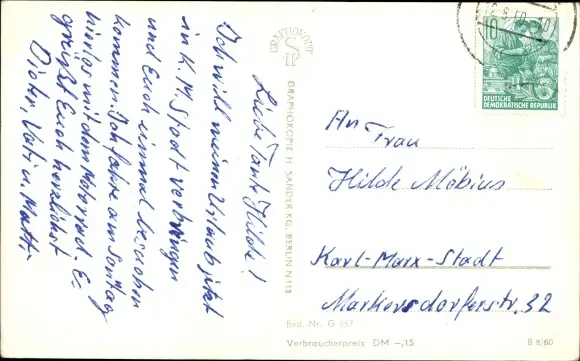 Liebe Tante Hilde!
Ich will meinen Urlaub jetzt
in K. M. Stadt verbringen
und Euch einmal besuchen
kommen. Ich fahre am Sonntag
hier los mit dem Motorrad. Es
grüßt Euch herzlichst
Dieter, Vati u. Mutti
GRAPHOKOPIE
GRAPHOKOPIE H. SANDER KG, BERLIN N 113
10
DEUTSCHE
DEMOKRATISCHE REPUBLIK
An Frau
Hilde Möbius
Karl-Marx-Stadt
Markersdorferstr. 32
Best.-Nr. G
Verbraucherpreis DM -,15
B 8/60